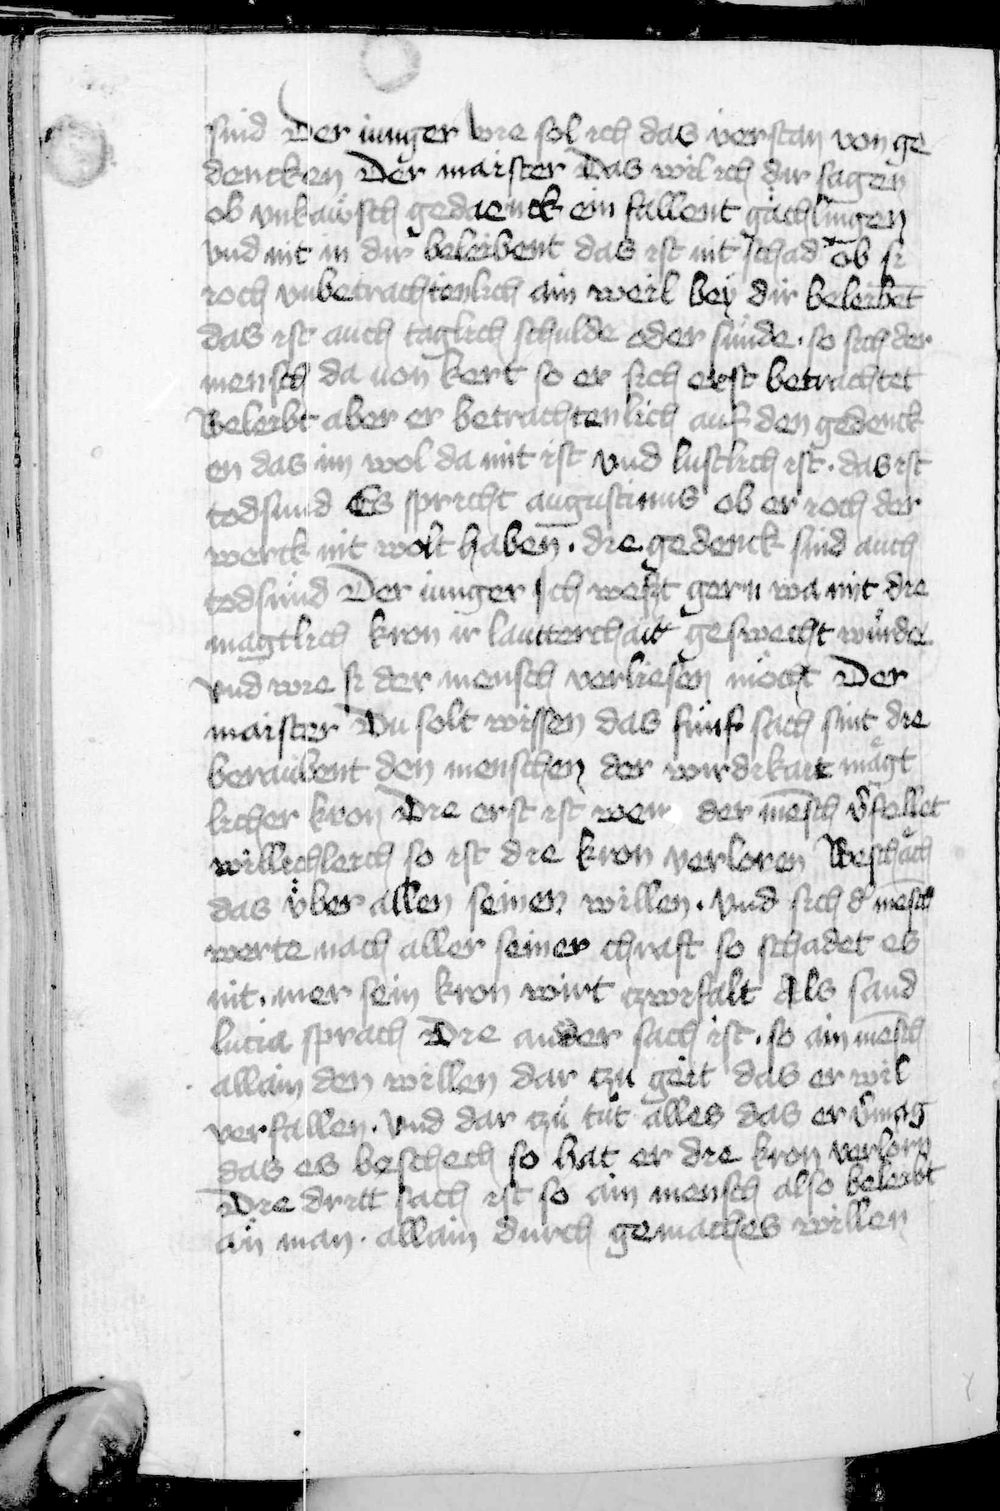 sind Der iunger wie sol ich das verstan von ge
dencken Der maister Das wil ich dir sagen
ob vnkaüsch gedaenck ein fallent gächlingen
vnd nit in dir beleibent das ist nit schad Ob si
ioch vnbetrachtenlich ain weil bey dir beleibet
das ist auch taglich schulde oder sünde · so sich der
mensch da von kert so er sich erst betrachtet
Beleibt aber er betrachtenlich auf den gedenck
en das im wol da mit ist vnd lustlich ist · das ist
todsund Es spricht augustinus ob er ioch der
werck nit wolt haben̄ · die gedenck sind auch
todsünd Der iunger Ich west gern wa mit die
magtlich kron ir lautterchait geswecht würde
vnd wie si der mensch verliesen möcht Der
maister Du solt wissen das fünf sach sint die
beraubent den menschen der wirdikait mägt
licher kron Die erst ist wenn der mēsch v̄fellet
willichleich so ist die kron verloren Beschäch
das über allen seinen willen · vnd sich d' mēsch
werte nach aller seiner chraft so schadet es
nit · mer sein kron wirt czwifalt Als sand
lucia sprach Die ander sach ist · so ain mēsch
allain den willen dar czu geit das er wil
verfallen · Vnd dar czü tüt alles das er v̄mag
das es beschech so hat er die kron verlorn
Die dritt sach ist so ain mensch also beleibt
än man · allain durch gemaches willen